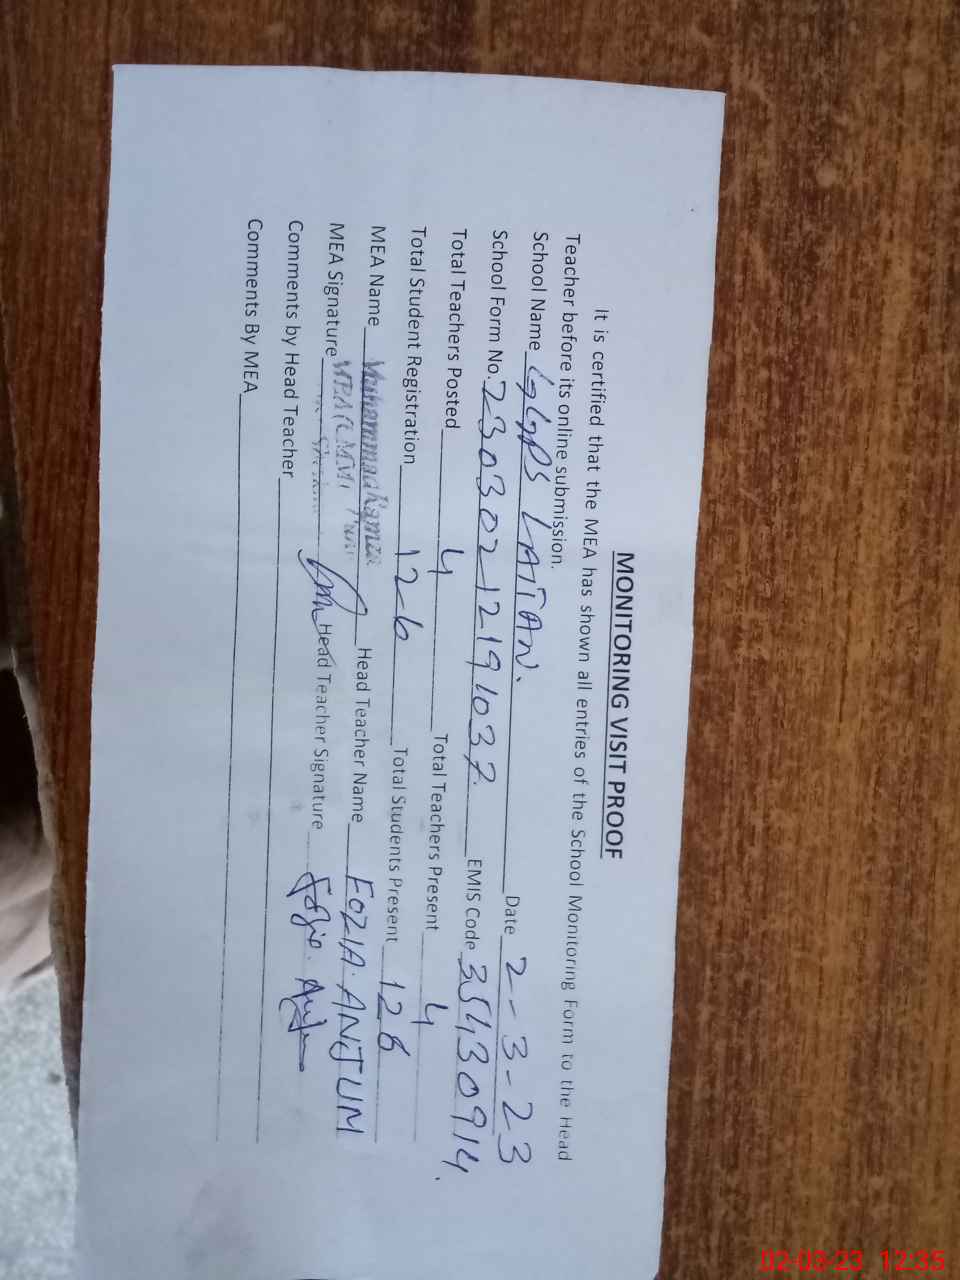 MONITORING VISIT PROOF
It is certified that the MEA has shown all entries of the School Monitoring Form to the Head
Teacher before its online submission.
School Name GGPS LAITAN. Date 2-3-23
School Form No. 230302121911037. EMIS Code 35430914.
Total Teachers Posted 4 Total Teachers Present 4
Total Student Registration 126 Total Students Present 126
MEA Name Muhammad Ramzan Head Teacher Name FOZIA. ANJUM
MEA Signature MEA(CMMF Head Teacher Signature Fozia. Anjum
Comments by Head Teacher
Comments By MEA
02-03-23 12:35